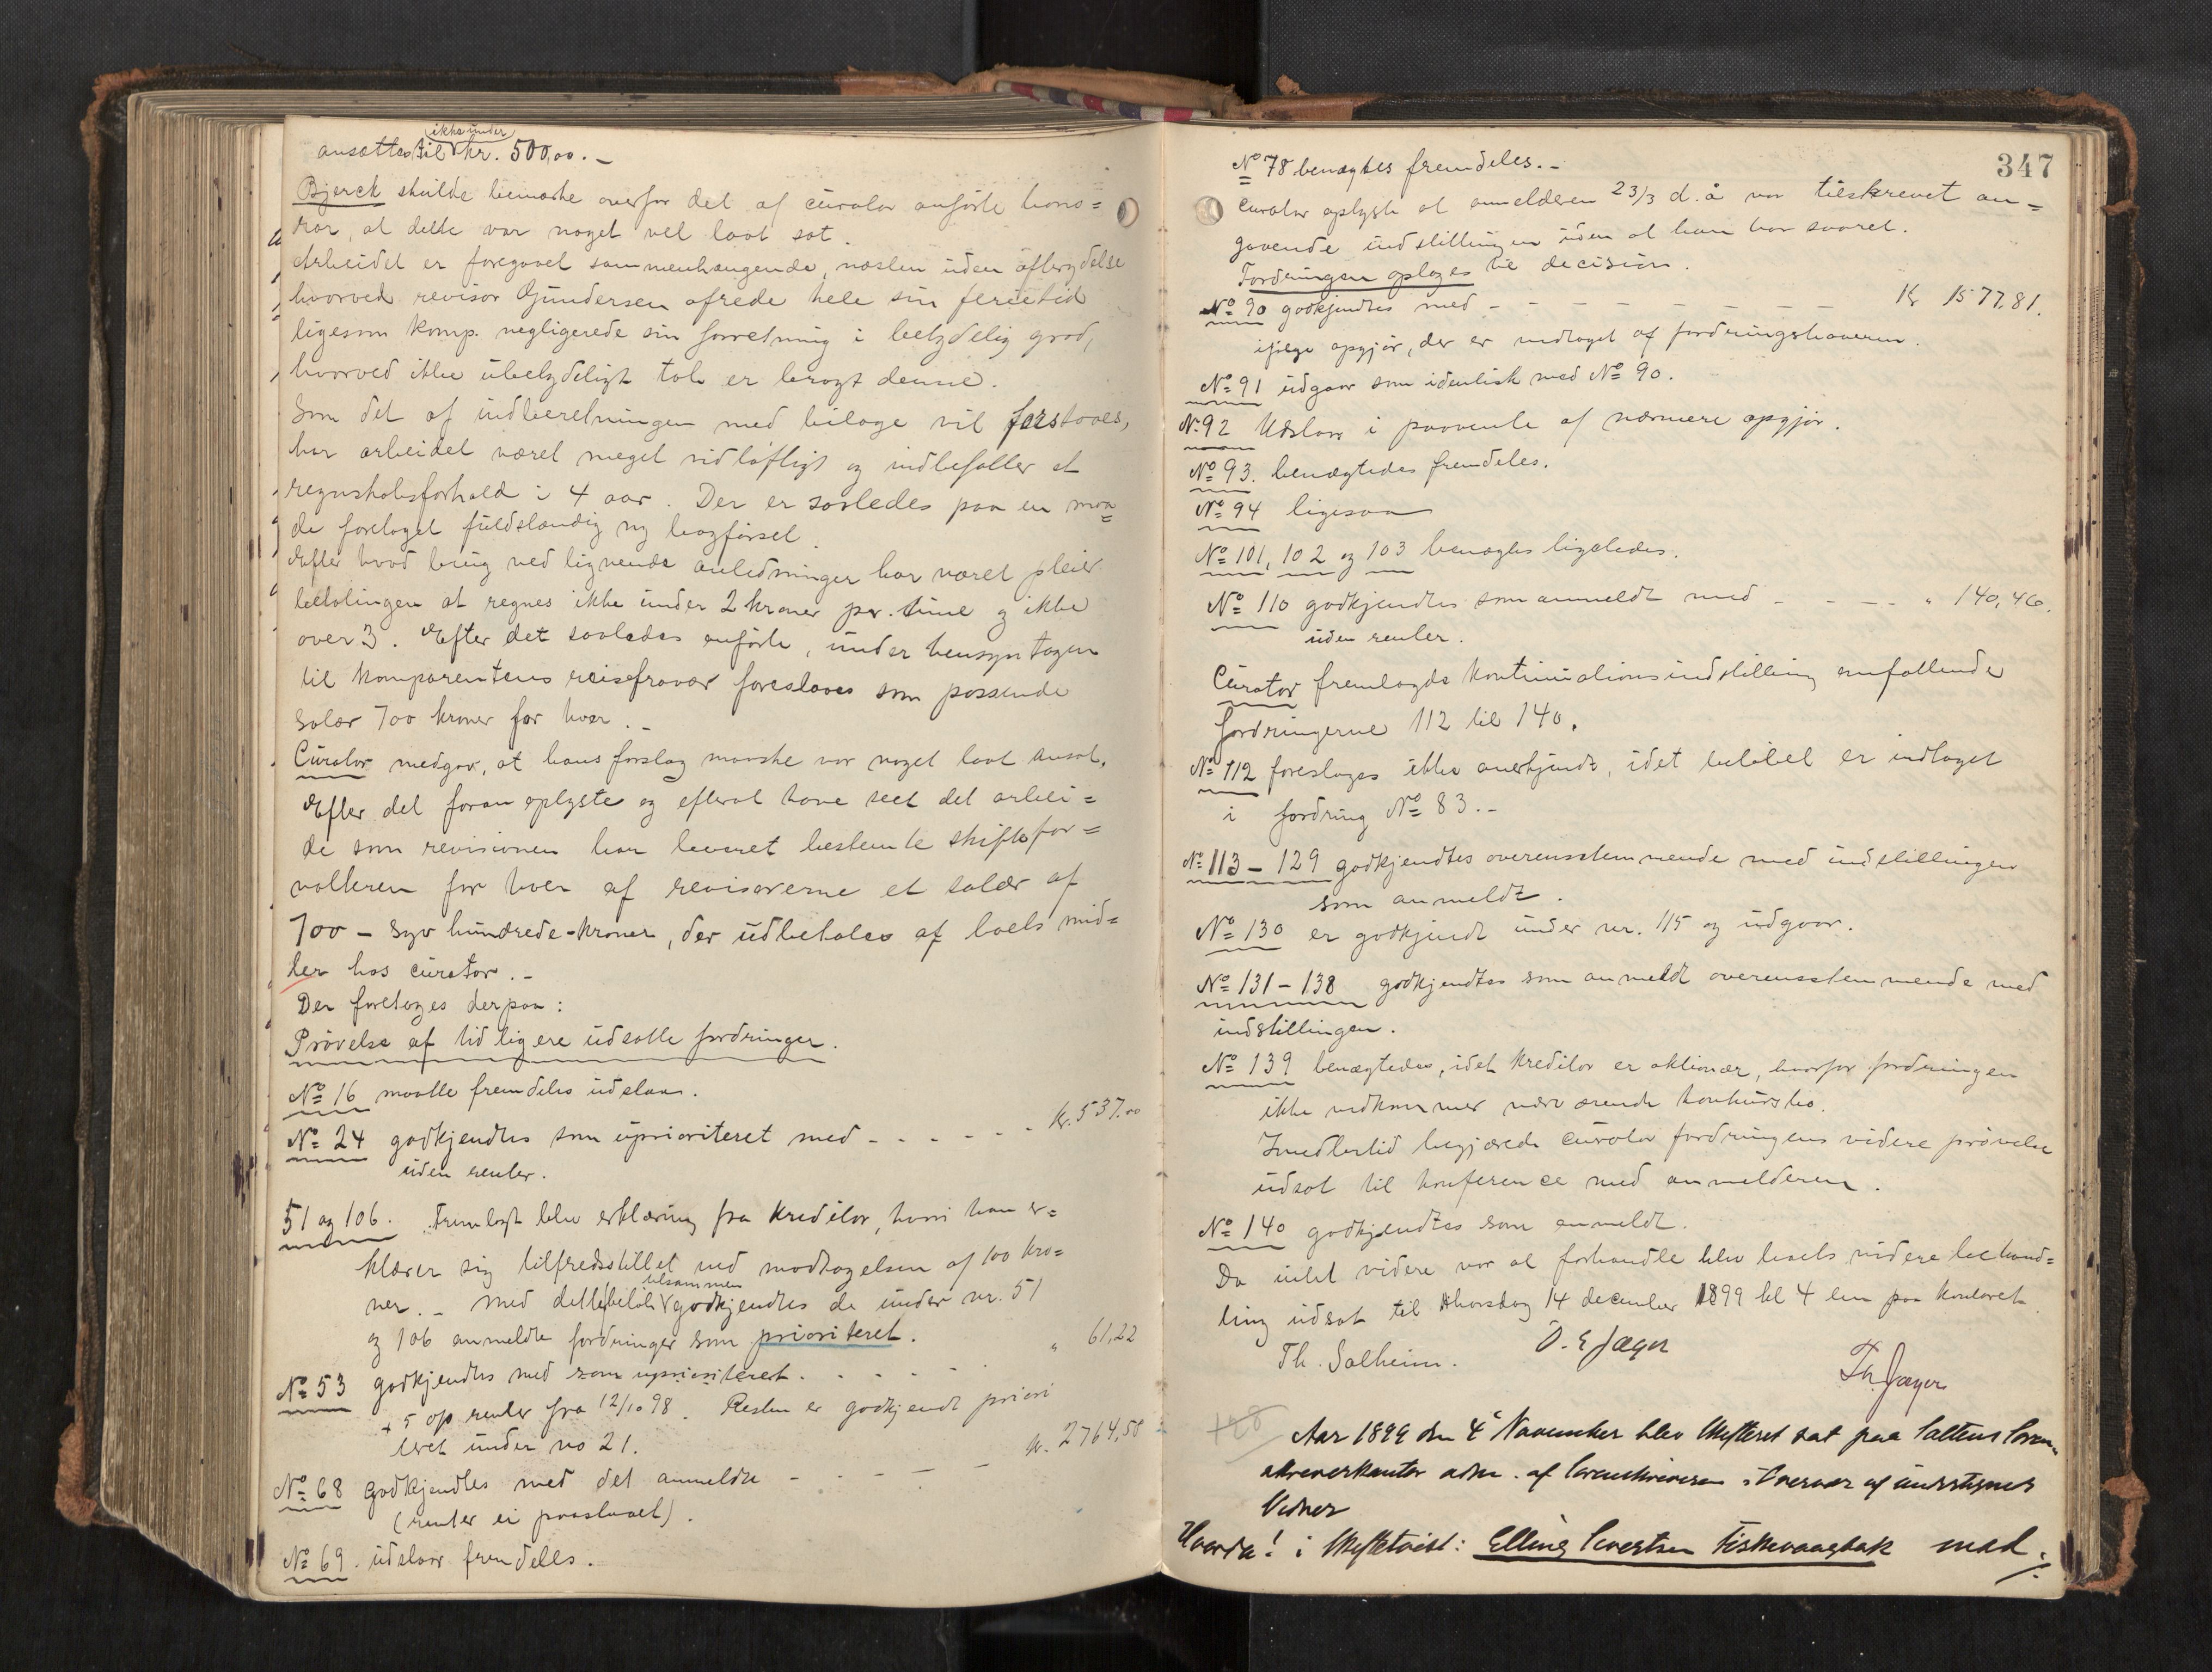 ikke under
ansættes til kr. 500,00. -
Bjerck skulde bemærke overfor det af curator anførte hono=
rar, at dette var noget vel lavt sat.
Arbeidet er foregaaet sammenhængende, næsten uden afbrydelse
hvorved revisor Gundersen ofrede hele sin ferietid
ligesom komp. negligerede sin forretning i betydelig grad,
hvorved ikke ubetydeligt tab er bragt denne.
Som det af indberetningen med bilage vil forstaaes,
har arbeidet været meget vidløftigt og indbefatter et
regnskabsforhold i 4 aar. Der er saaledes paa en maa=
de foretaget fuldstændig ny bogførsel.
Efter hvad brug ved lignende anledninger har været pleier
betalingen at regnes ikke under 2 kroner pr. time og ikke
over 3. Efter det saaledes anførte, under hensyntagen
til komparentens reisefravær foreslaaes som passende
salær 700 kroner for hver. -
Curator medgav, at hans forslag maaske var noget lavt ansat.
Efter det foran oplyste og efterat have seet det arbei=
de som revisionen har leveret bestemte skiftefor=
valteren for hver af revisorerne et salær af
700 - syv hundrede - kroner, der udbetales af boets mid=
ler hos curator. -
Der foretages derpaa:
Prøvelse af tidligere udsatte fordringer.
No 16 maatte fremdeles udstaa.
No 24 godkjendtes som uprioriteret med - - - - - - kr. 537.00
uden renter.
51 og 106. Fremlagt blev erklæring fra kreditor, hvori han er=
klærer sig tilfredsstillet ved modtagelsen af 100 kro=
ner. - Med dette beløb tilsammen godkjendtes de under nr. 51
og 106 anmeldte fordringer som prioriteret.
No 53 godkjendtes med som uprioriteret. - - - - " 61,22
+ 5 % renter fra 12/10 98. Resten er godkjendt priori
teret under no 21.
No 68 godkjendtes med det anmeldte - - - - - kr. 2764,50
(renter ei paastaaet).
No 69. udstaar fremdeles.
347
No 78 benægtes fremdeles. -
Curator oplyste at anmelderen 23/3 d. å var tilskrevet an=
gaaende indstillingen uden at han har svaret.
Fordringen optages til decision.
No 90 godkjendtes med - - - - - - - - Kr 1577,81.
ifølge opgjør, der er vedtaget af fordringshaveren.
No 91 udgaar som identisk med No 90.
No 92 Udstaar i paavente af nærmere opgjør.
No 93. benægtedes fremdeles.
No 94 ligesaa
No 101, 102 og 103 benægtes ligeledes.
No 110 godkjendtes som anmeldt med - - - - " 140,46.
uden renter.
Curator fremlagde kontinuationsindstilling omfattende
fordringerne 112 til 140.
No 112 foreslages ikke anerkjendt, idet beløbet er indtaget
i fordring No 83. -
No 113 - 129 godkjendtes overensstemmende med indstillingen
som anmeldt.
No 130 er godkjendt under nr. 115 og udgaar.
No 131 - 138 godkjendtes som anmeldt overensstemmende med
indstillingen.
No 139 benægtedes, idet kreditor er aktionær, hvorfor fordringen
ikke vedkommer nærværende konkursbo.
Imedlertid begjærede curator fordringens videre prøvelse
udsat til konference med anmelderen.
No 140 godkjendtes som anmeldt.
Da intet videre var at forhandle blev boets videre behand=
ling udsat til thorsdag 14 december 1899 kl 4 em paa kontoret.
Th. Solheim. O. E Jæger
Th. Jæger
Aar 1899 den 4de November blev Skifteret sat paa Saltens Soren=
skriverkontor adm. af Sorenskriveren i Overvær af undertegnede
Vidner
Hvorda! i Skiftetvist: Elling Sivertsen Fiskevaagbak mod